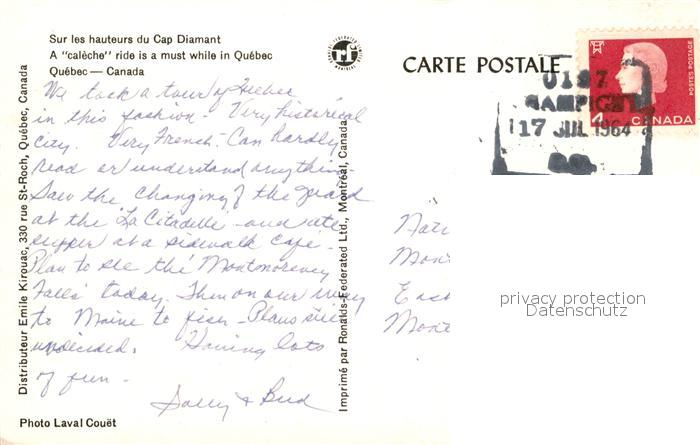 Sur les hauteurs du Cap Diamant
A "calèche" ride is a must while in Québec
Québec — Canada
CARTE POSTALE
POSTES POSTAGE
4
CANADA
17 JUL 1964
We took a tour of Quebec
in this fashion - Very historical
city. Very French - Can hardly
read or understand anything -
Saw the changing of the guard
at the "La Citadelle - and ate
supper at a sidewalk cafe -
Plan to see the Montmorency
Falls today. Then on our way
to Maine to fish - Plans still
undecided. Having lots
of fun -
Sally & Bud
Nati
Mon
East
Mont
privacy protection
Datenschutz
Distributeur Emile Kirouac, 330 rue St-Roch, Québec, Canada
Imprimé par Ronalds-Federated Ltd., Montréal, Canada
Photo Laval Couët